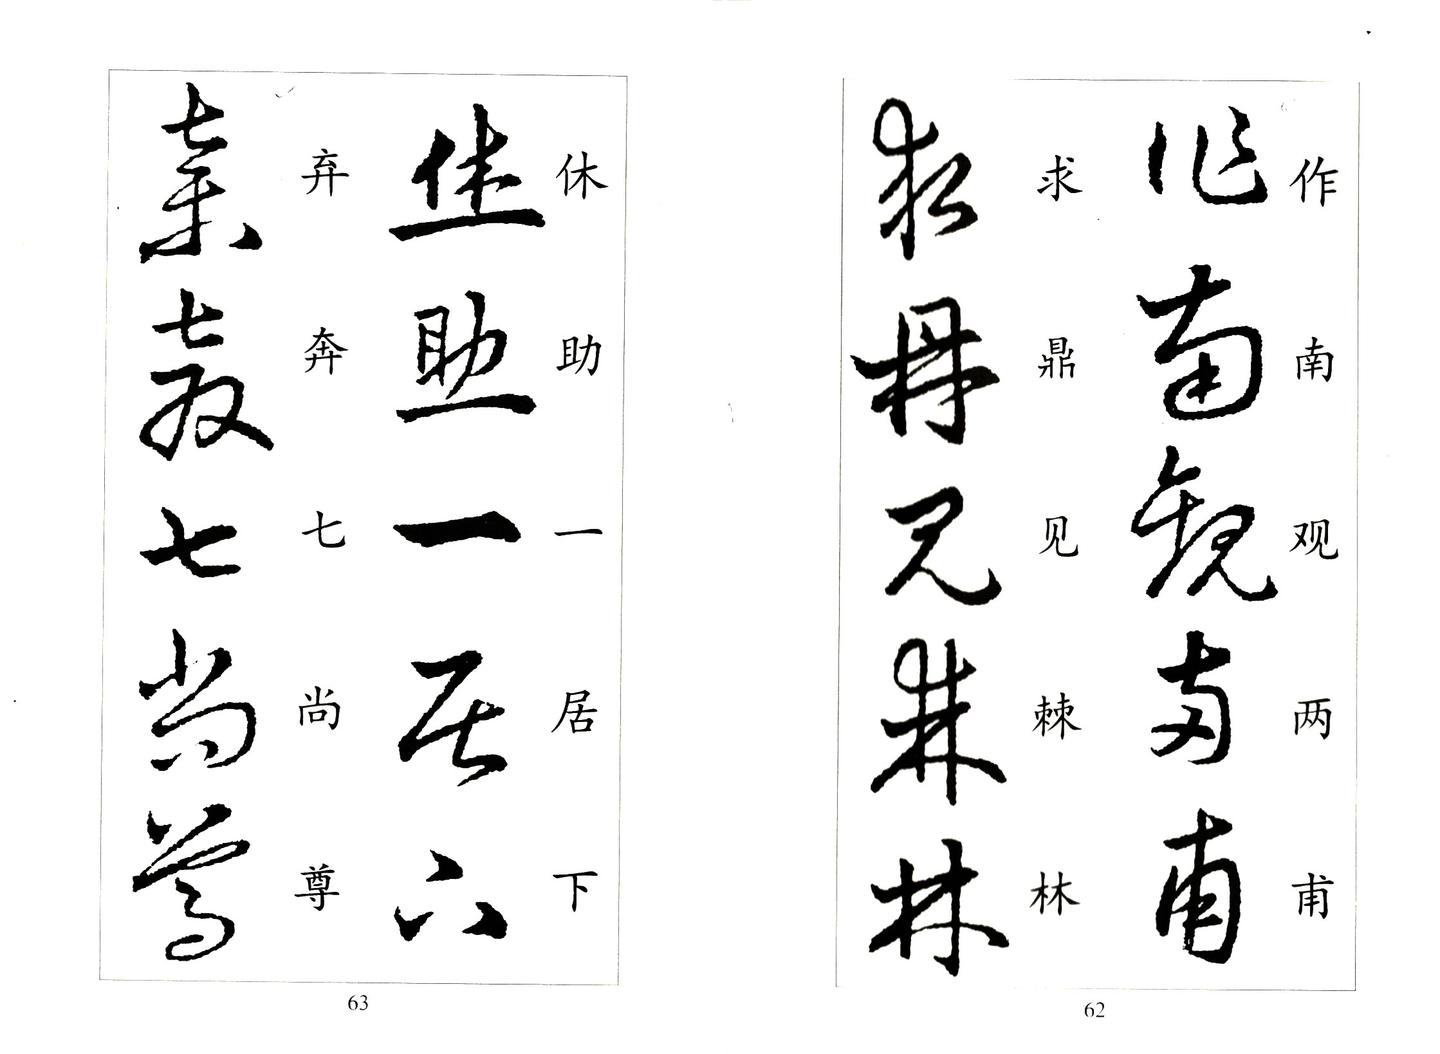 作南观两甫
求鼎见棘林
62
休助一居下
弃奔七尚尊
63